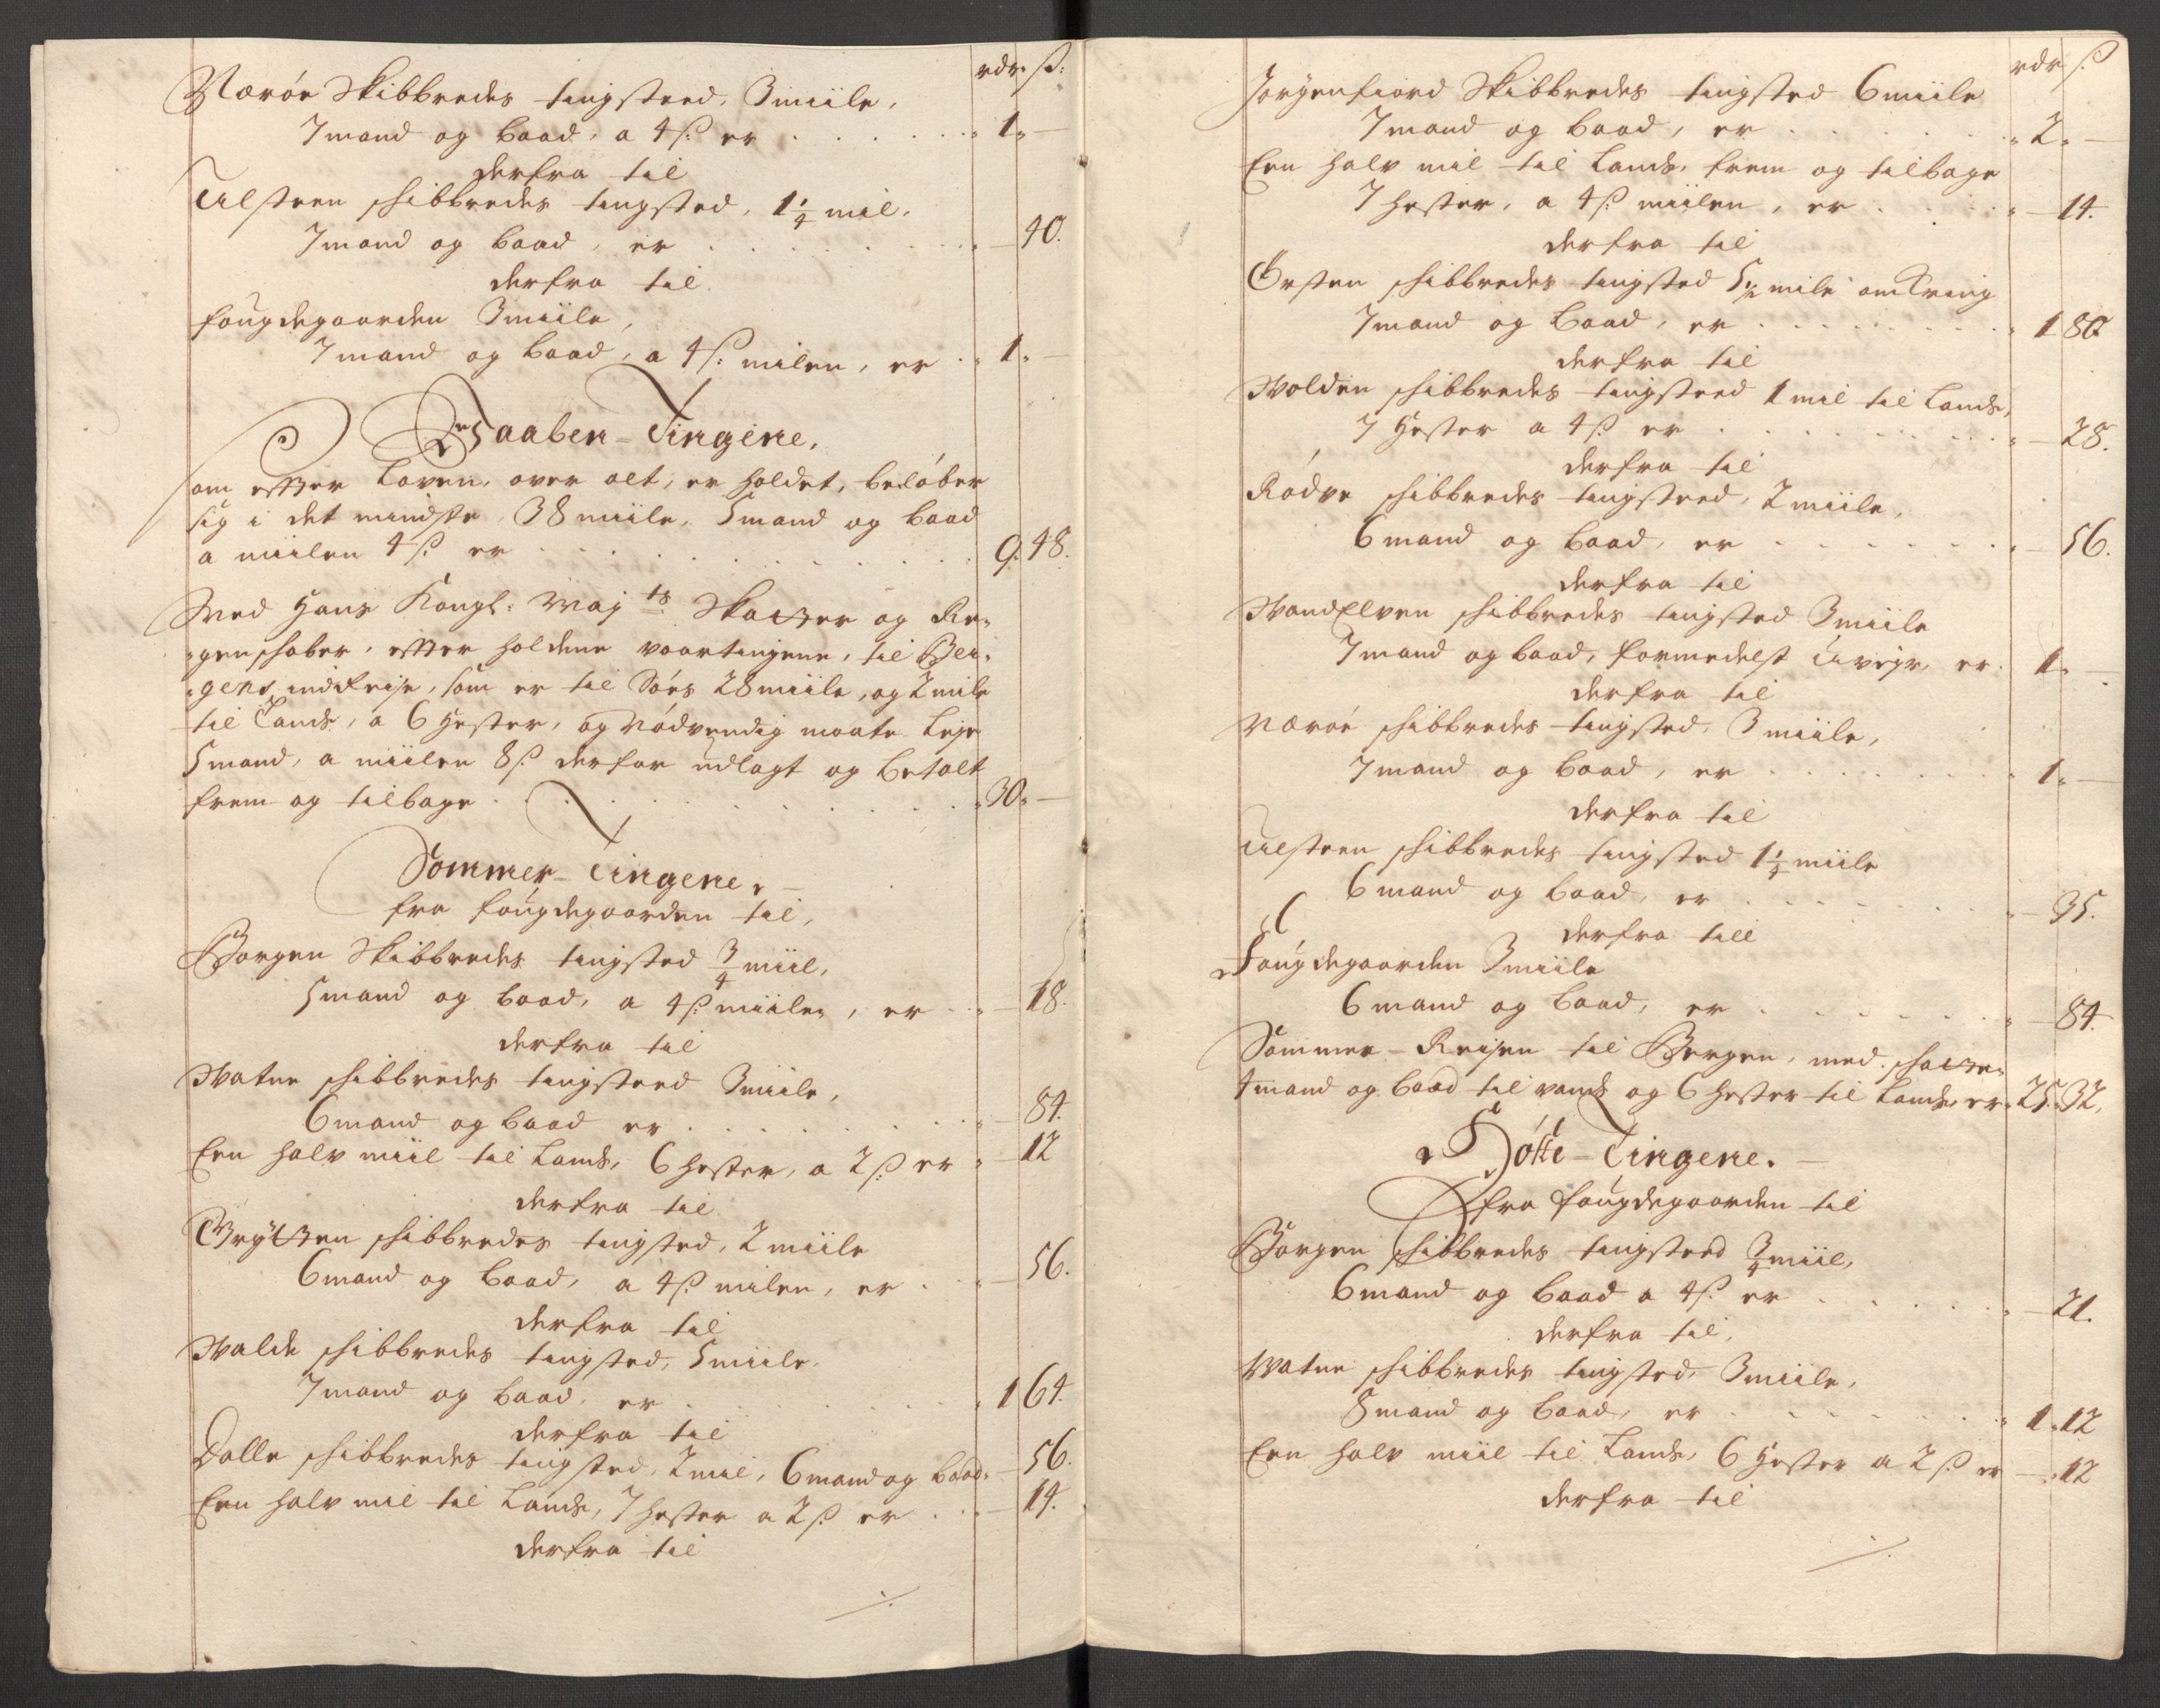 rdr. ß:
Nærøe Skibbredes tingsteed, 3 miile,
7 mand og baad, a 4 ß: er . . . . . . 1. —
derfra til
Ulsteen schibbredes tingsted, 1¼ mil.
7 mand og baad, er . . . . . . . — 40.
derfra til
fougdegaarden 3 miile,
7 mand og baad, a 4 ß: milen, er . . 1. —
Waaben-Tingene,
som effter Loven, over alt, er holdet, beløber
sig i det mindste, 38 miile, 5 mand og baad
a miilen 4 ß: er . . . . . . . . 9. 48.
Med Hans Kongl: May ts Skatter og Re-
genschaber, effter holdene vaartingene, til Ber-
gens indreise, som er til Søes 28 miile, og 2 mile
til Lands, a 6 Hester, og Nødvendig maate Leje
5 mand, a miilen 8 ß derfor udlagt og betalt
frem og tilbage . . . . . . . . . 30. —
Sommer-Tingene, —
fra fougdegaarden til,
Borgen Skibbredes tingsted ¾ miil,
5 mand og baad, a 4 ß: miilen, er . . — 18.
derfra til
Watne schibbredes tingsteed 3 miile,
6 mand og baad er . . . . . . . — 84.
Een halv miil til Lands, 6 hester, a 2 ß: er — 12
derfra til
Grytten schibbredes tingsted, 2 miile
6 mand og baad, a 4 ß: milen, er . . — 56.
derfra til
Walde schibbredes tingsted, 5 miile.
7 mand og baad, er . . . . . . . 1 64.
derfra til
Dalle schibbredes tingsted, 2 mil, 6 mand og baad. — 56.
Een halv mil til Lands, 7 hester a 2 ß: er . . — 14.
derfra til
./.
rdr ß:
Jørgenfiord Skibbredes tingsted 6 miile
7 mand og baad, er . . . . . . . 2. —
Een halv mil til Lands, frem og tilbage
7 hester, a 4 ß: miilen, er . . . . — 14.
derfra til
Ørsten schibbredes tingsted 5½ mile omkring
7 mand og baad, er . . . . . . . 1 80
derfra til
Wolden schibbredes tingsteed 1 mil til Lands,
7 Hester a 4 ß: er . . . . . . . — 28.
derfra til
Rødve schibbredes tingsteed, 2 miile,
6 mand og baad, er . . . . . . . — 56.
derfra til
Wandelven schibbredes tingsted 3 miile
7 mand og baad, formedelst Uveyr, er. 1. —
derfra til
Nærøe schibbredes tingsted, 3 miile,
7 mand og baad, er . . . . . . . 1. —
derfra til
Ulsteen schibbredes tingsted 1¼ miile
6 mand og baad, er . . . . . . . — 35.
derfra till
Fougdegaarden 3 miile
6 mand og baad, er . . . . . . . — 84.
Sommer-Reisen til Bergen, med schatte-
4 mand og baad til vands og 6 hester til Lands, er. 25. 32.
Høste-Tingene. —
fra fougdegaarden til
Borgen schibbredes tingsteed ¾ miil,
6 mand og baad a 4 ß: er . . . . . — 21.
derfra til,
Watne schibbredes tingsted, 3 miile,
8 mand og baad, er . . . . . . . 1. 12
Een halv miil til Lands, 6 Hester a 2 ß: er — 12
derfra til
./.